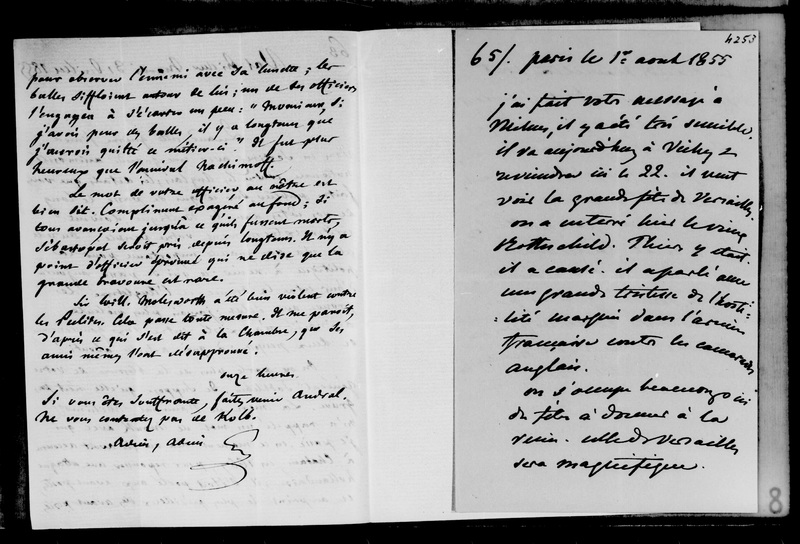 pour observer l'ennemi avec sa lunette ; les
balles siffloient autour de lui ; un de ses officiers
l'engagea à s'écarter un peu : "Monsieur, si
j'avois peur des balles, il y a longtems que
j'aurois quitté ce métier-ci." Il fut plus
heureux que l'amiral Nachimoff.
Le mot de votre officier au nôtre est
bien dit. Compliment exagéré au fond ; si
tous avançoient jusqu'à ce qu'ils fussent morts,
Sébastopol seroit pris depuis longtems. Il n'y a
point d'officier éprouvé qui ne dise que la
grande bravoure est rare.
Sir Will. Molesworth a été bien violent contre
les Peelites. Cela passe toute mesure. Il me paroit,
d'après ce qui s'est dit à la Chambre, que ses
amis mêmes l'ont désapprouvé.
onze heures
Si vous êtes souffrante, faites venir Andral.
Ne vous contentez pas de Kolb.
Adieu, adieu
4253
65/. paris le 1er aout 1855
j'ai fait votre message à
il y a été très sensible.
il va aujourd'huy à Vichy &
reviendra ici le 22. il veut
voir la grande fête de Versailles
on a enterré hier le vieux
Rothschild. Thiers y était.
il a causé. il a parlé avec
une grande tristesse de l'hosti-
-lité marquée dans l'armée
française contre les camarades
anglais.
on s'occupe beaucoup ici
des fêtes à donner à la
reine. celle de Versailles
sera magnifique.
8